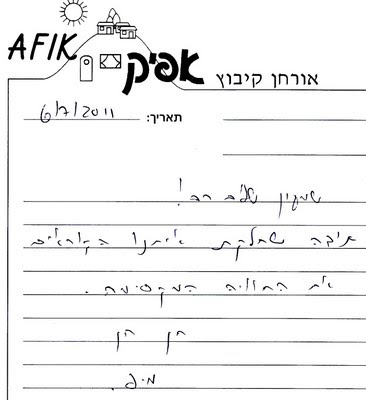 AFIK
אפיק
אורחן קיבוץ
תאריך: 6/7/2011
שמעון שלום רב!
תודה שחלקת איתנו הקוראים
את החוויה המקסימה.
חן חן